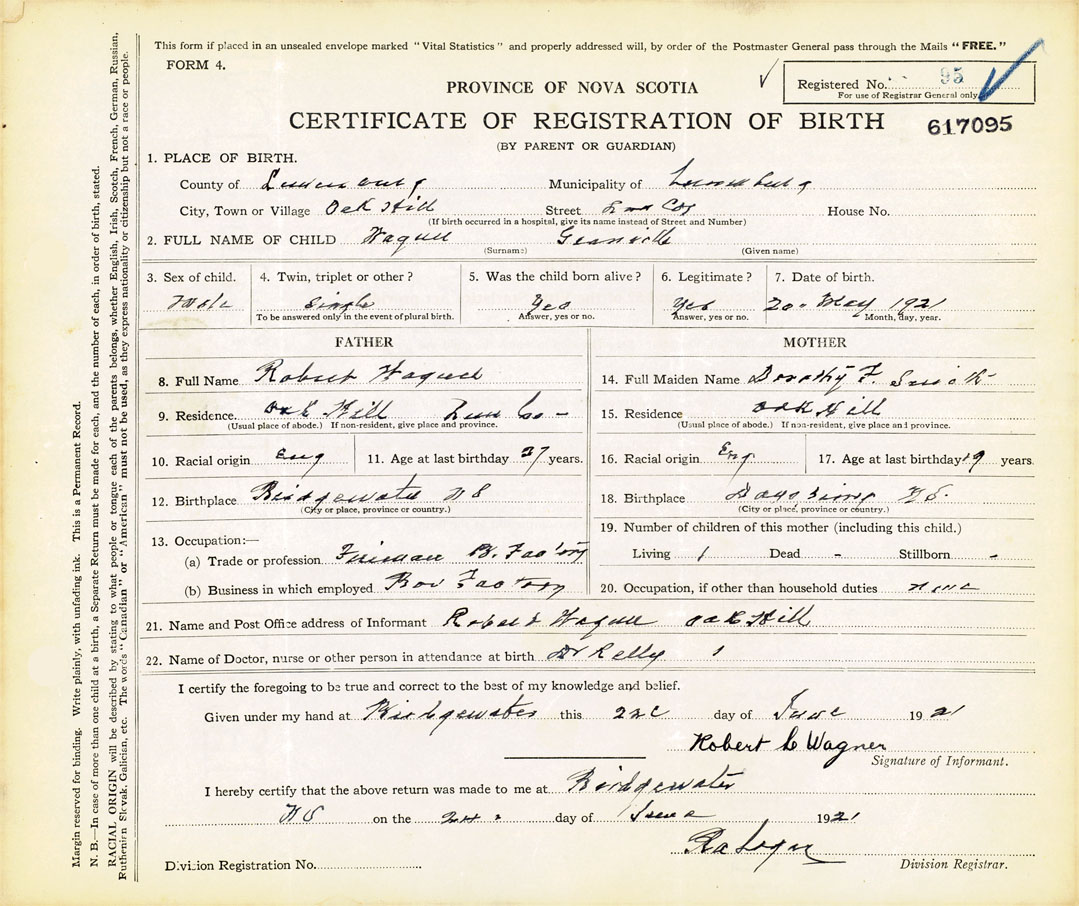 This form if placed in an unsealed envelope marked "Vital Statistics" and properly addressed will, by order of the Postmaster General pass through the Mails "FREE."
FORM 4.
Registered No. 95
For use of Registrar General only
PROVINCE OF NOVA SCOTIA
CERTIFICATE OF REGISTRATION OF BIRTH
617095
(BY PARENT OR GUARDIAN)
1. PLACE OF BIRTH.
County of Lunenburg Municipality of Lunenburg
City, Town or Village Oak Hill Street Lun Co House No.
(If birth occurred in a hospital, give its name instead of Street and Number)
2. FULL NAME OF CHILD Wagner Granville
(Surname) (Given name)
3. Sex of child. 4. Twin, triplet or other? 5. Was the child born alive? 6. Legitimate? 7. Date of birth.
Male Single Yes Yes 20 May 1921
To be answered only in the event of plural birth. Answer, yes or no. Answer, yes or no. Month, day, year.
FATHER MOTHER
8. Full Name Robert Wagner 14. Full Maiden Name Dorothy F. Smith
9. Residence. Oak Hill Lun Co - 15. Residence Oak Hill
(Usual place of abode.) If non-resident, give place and province. (Usual place of abode.) If non-resident, give place and province.
10. Racial origin Eng 11. Age at last birthday 27 years. 16. Racial origin Eng. 17. Age at last birthday 19 years.
12. Birthplace Bridgewater NS 18. Birthplace NS.
(City or place, province or country.) (City or place, province or country.)
13. Occupation:— 19. Number of children of this mother (including this child.)
(a) Trade or profession Fireman B. Factory Living 1 Dead - Stillborn -
(b) Business in which employed Box Factory 20. Occupation, if other than household duties none
21. Name and Post Office address of Informant Robert Wagner Oak Hill
22. Name of Doctor, nurse or other person in attendance at birth Dr Kelly
I certify the foregoing to be true and correct to the best of my knowledge and belief.
Given under my hand at Bridgewater this 22 day of June 1921
Robert C Wagner
Signature of Informant.
I hereby certify that the above return was made to me at Bridgewater
NS on the day of June 1921
Division Registration No. Division Registrar.
Margin reserved for binding. Write plainly, with unfading ink. This is a Permanent Record.
N. B.—In case of more than one child at a birth, a Separate Return must be made for each, and the number of each, in order of birth, stated.
RACIAL ORIGIN will be described by stating to what people or tongue each of the parents belongs, whether English, Irish, Scotch, French, German, Russian,
Ruthenian Slovak, Galician, etc. The words "Canadian" or "American" must not be used, as they express nationality or citizenship but not a race or people.